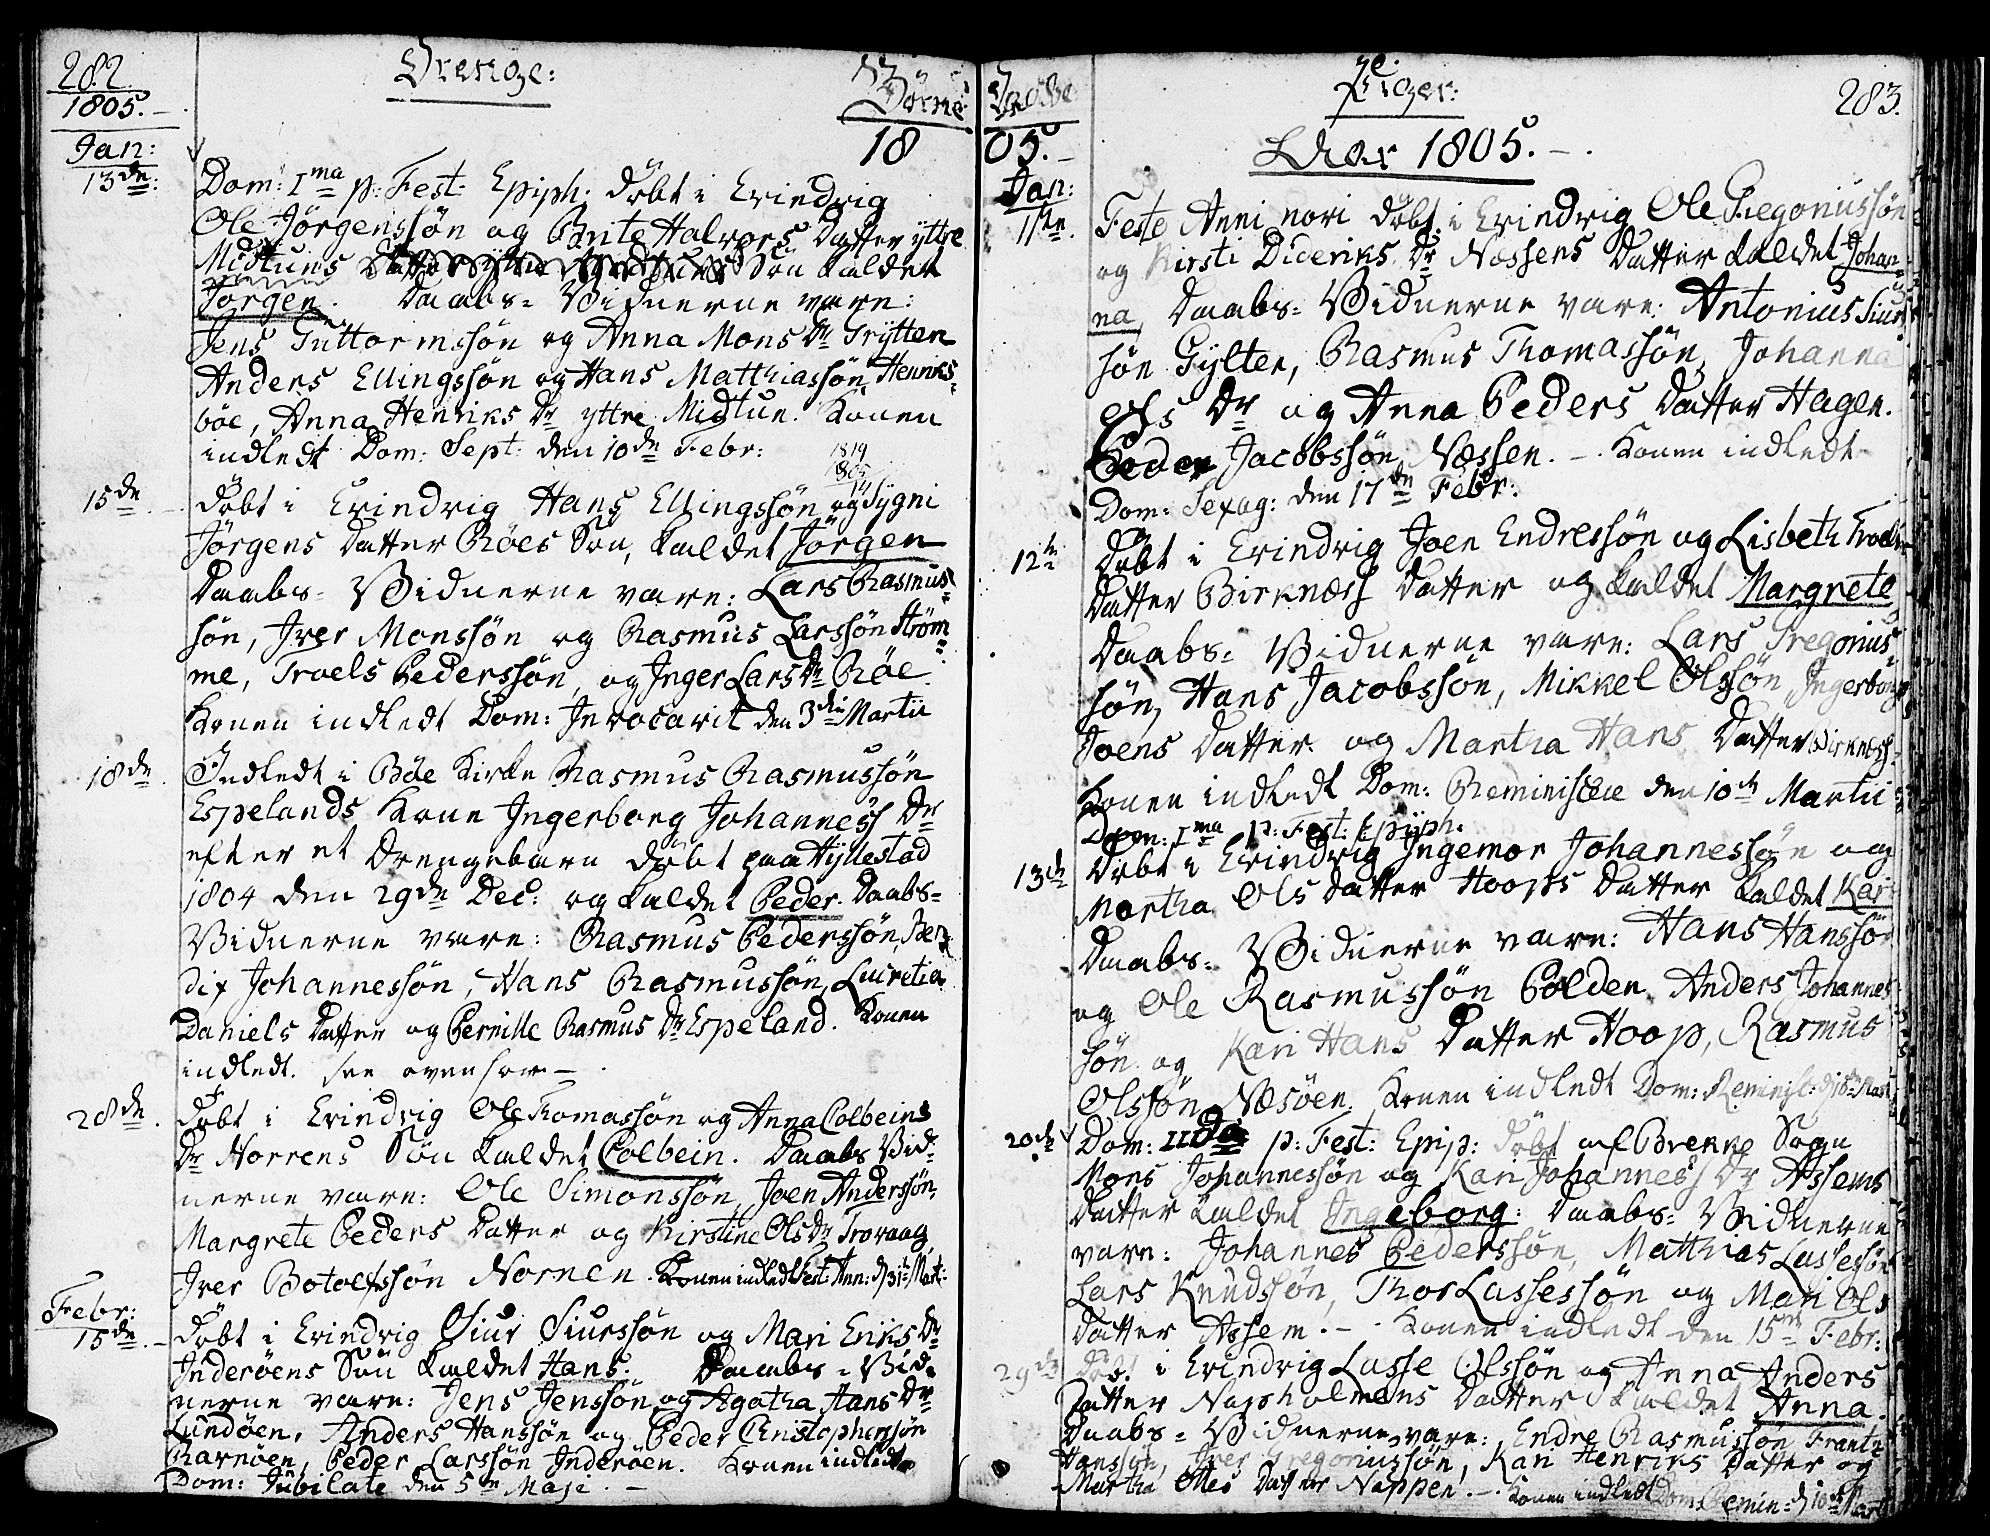 282.
Drenge:
Börne
1805.
18
Jan:
13de:
Dom: 1ma p: Fest: Epiph: döbt i Evindvig
Ole Jörgenssön og Brite Halvors Datter yttre
Midtuns Sön kaldet
Jörgen. Daabs- Vidnerne vare:
Jens Guttormssön og Anna Mons Dr Trÿtten
Anders Ellingssön og Hans Matthiassön Henriks-
böe, Anna Henriks Dr yttre Midtun. Konen
indledt Dom: Sept: den 10de Febr:
1819
1805
14
15de
Döbt i Evindvig Hans Ellingssön og Sygni
Jörgens Datter Röes Sön, kaldet Jörgen
Daabs- Vidnerne vare: Lars Rasmus-
sön, Iver Monssön og Rasmus Larssön Ström-
me, Troels Pederssön, og Inger Lars Dr Röe.
Konen indledt Dom: Invocavit den 3die Martii
18de
Indledt i Böe Kirke Rasmus Rasmussön
Espelands Kone Ingerborg Johanness Dr
efter et Drengebarn döbt paa Hÿllestad
1804 den 29de Dec: og kaldet Peder. Daabs-
Vidnerne vare: Rasmus Pederssön Ben-
dix Johannessön, Hans Rasmussön, Lucretia
Daniels Datter og Pernille Rasmus Dr Espeland. Konen
indledt. see ovenfor
28de
Döbt i Evindvig Ole Thomassön og Anna Colbeins
Dr Norrens Sön kaldet Colbein. Daabs Vid-
nerne vare: Ole Simonssön, Joen Anderssön,
Margrete Peders Datter og Kirstine Ols Dr Trovaag
Iver Botolfssön Nornen. Konen indledt Fest: Ann: d 31te Mart:
Febr:
15de
Döbt i Evindvig Siur Siurssön og Mari Eriks Dr
Inderöens Sön kaldet Hans. Daabs-Vid-
nerne vare: Jens Jenssön og Agatha Hans Dr
Lundöen, Anders Hanssön og Peder Christopherssön
Ravnöen, Peder Larssön Inderöen. Konen indledt
Dom: Jubilate den 5te Maji.
Döbte
Piger:
283.
05.
Aar 1805.
Jan:
11te
Feste Anni novi döbt i Evindvig Ole Gregoriussön
og Kirsti Dideriks Dr Næssens Datter kaldet Johan-
na, Daabs- Vidnerne vare: Antonius Siur-
sön Gylten, Rasmus Thomassön, Johanna
Ols Dr og Anna Peders Datter Hagen.
Peder Jacobssön Næssen. - Konen indledt
Dom: Sexag: den 17de Febr:
12te
Döbt i Evindvig Joen Endressön og Lisbeth
Datter Birknæss Datter og kaldet Margrete
Daabs- Vidnerne vare: Lars Gregorius-
sön, Hans Jacobssön, Mikkel Olssön, Ingerborg
Joens Datter og Martha Hans Datter Birknæss.
Konen indledt Dom: Reminiscere den 10de Martii
Dom: 1ma p: Fest: Epiph.
13de
Döbt i Evindvig Ingemor Johannessön og
Martha Ols Datter Hoops Datter kaldet Kari
Daabs- Vidnerne vare: Hans Hanssön
og Ole Rasmussön Polden, Anders Johannes-
sön og Kari Hans Datter Hoop, Rasmus
Olssön Næsöen. Konen indledt Dom:
20de
Dom: IIda p: Fest: Epip: döbt af Brekke Sogn
Mons Johannessön og Kari Johanness Dr Assems
Datter kaldet Ingeborg: Daabs- Vidnerne
vare: Johannes Pederssön, Matthias Lassesön
Lars Knudssön, Thor Lassessön og Mari Ols
Datter Assem. - Konen indledt den 15de Febr:
29de
Döbt i Evindvig Lasse Olssön og Anna Anders
Datter Næpholmens Datter kaldet Anna.
Daabs- Vidnerne vare: Endre Rasmussön, Frantz
Hanssön, Iver Gregoriussön, Kari Henriks Datter og
Martha Ottes Datter Nappen. - Konen indledt Dom: Remin: d 10de Mart